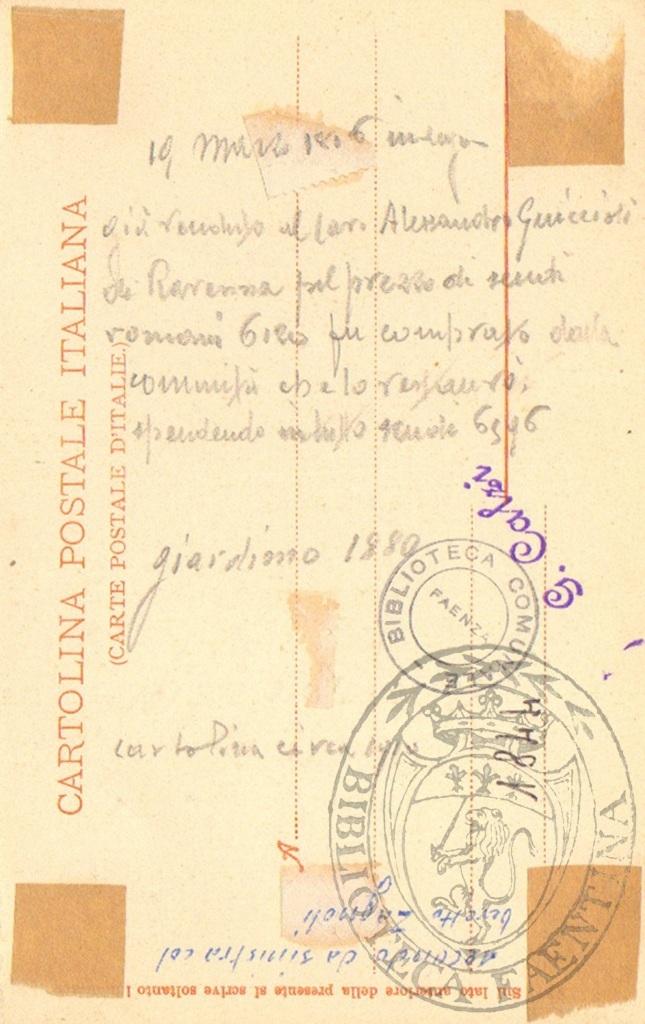 CARTOLINA POSTALE ITALIANA
(CARTE POSTALE D'ITALIE)
19 Marzo
già venduto al Cav. Alessandro Guiccioli
di Ravenna pel prezzo di scudi
romani fu comprato dalla
comunità che lo restaurò,
spendendo in tutto scudi 6596
giardino 1880
cartolina circa
G. Calzi
BIBLIOTECA COMUNALE
FAENZA
1844
BIBLIOTECA FAENTINA
A
secondo da sinistra col
beretto Zagnoli
Sul lato anteriore della presente si scrive soltanto l